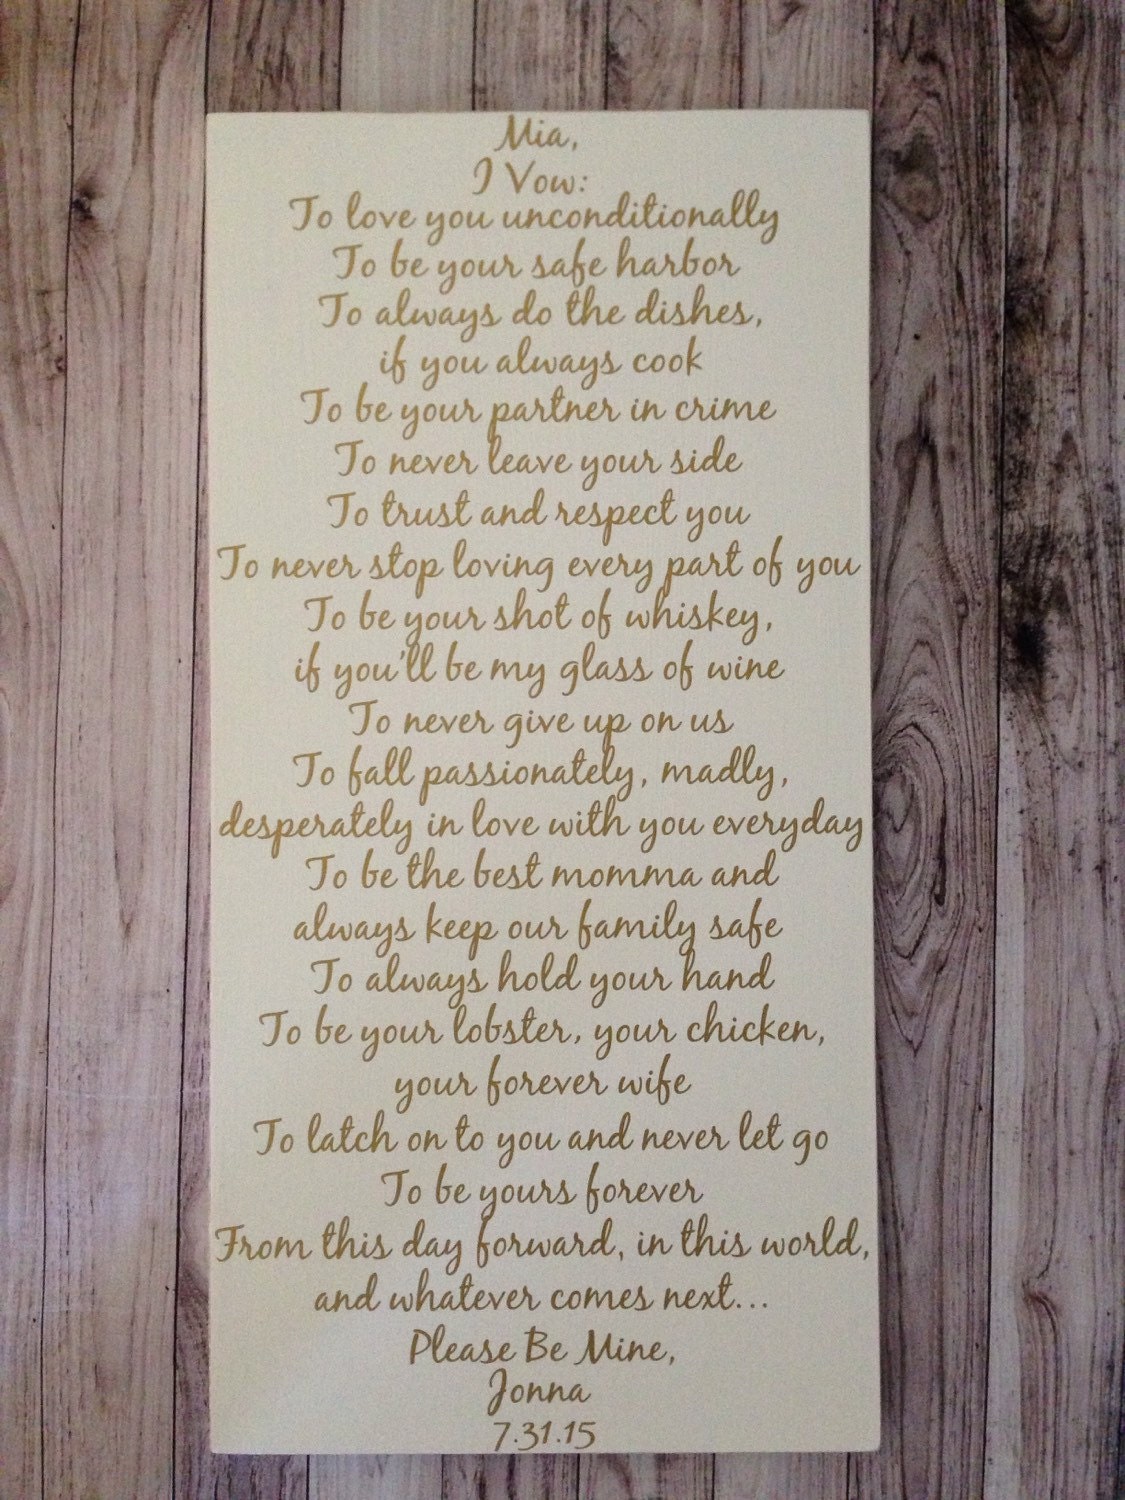 Mia,
I Vow:
To love you unconditionally
To be your safe harbor
To always do the dishes,
if you always cook
To be your partner in crime
To never leave your side
To trust and respect you
To never stop loving every part of you
To be your shot of whiskey,
if you'll be my glass of wine
To never give up on us
To fall passionately, madly,
desperately in love with you everyday
To be the best momma and
always keep our family safe
To always hold your hand
To be your lobster, your chicken,
your forever wife
To latch on to you and never let go
To be yours forever
From this day forward, in this world,
and whatever comes next...
Please Be Mine,
Jonna
7.31.15